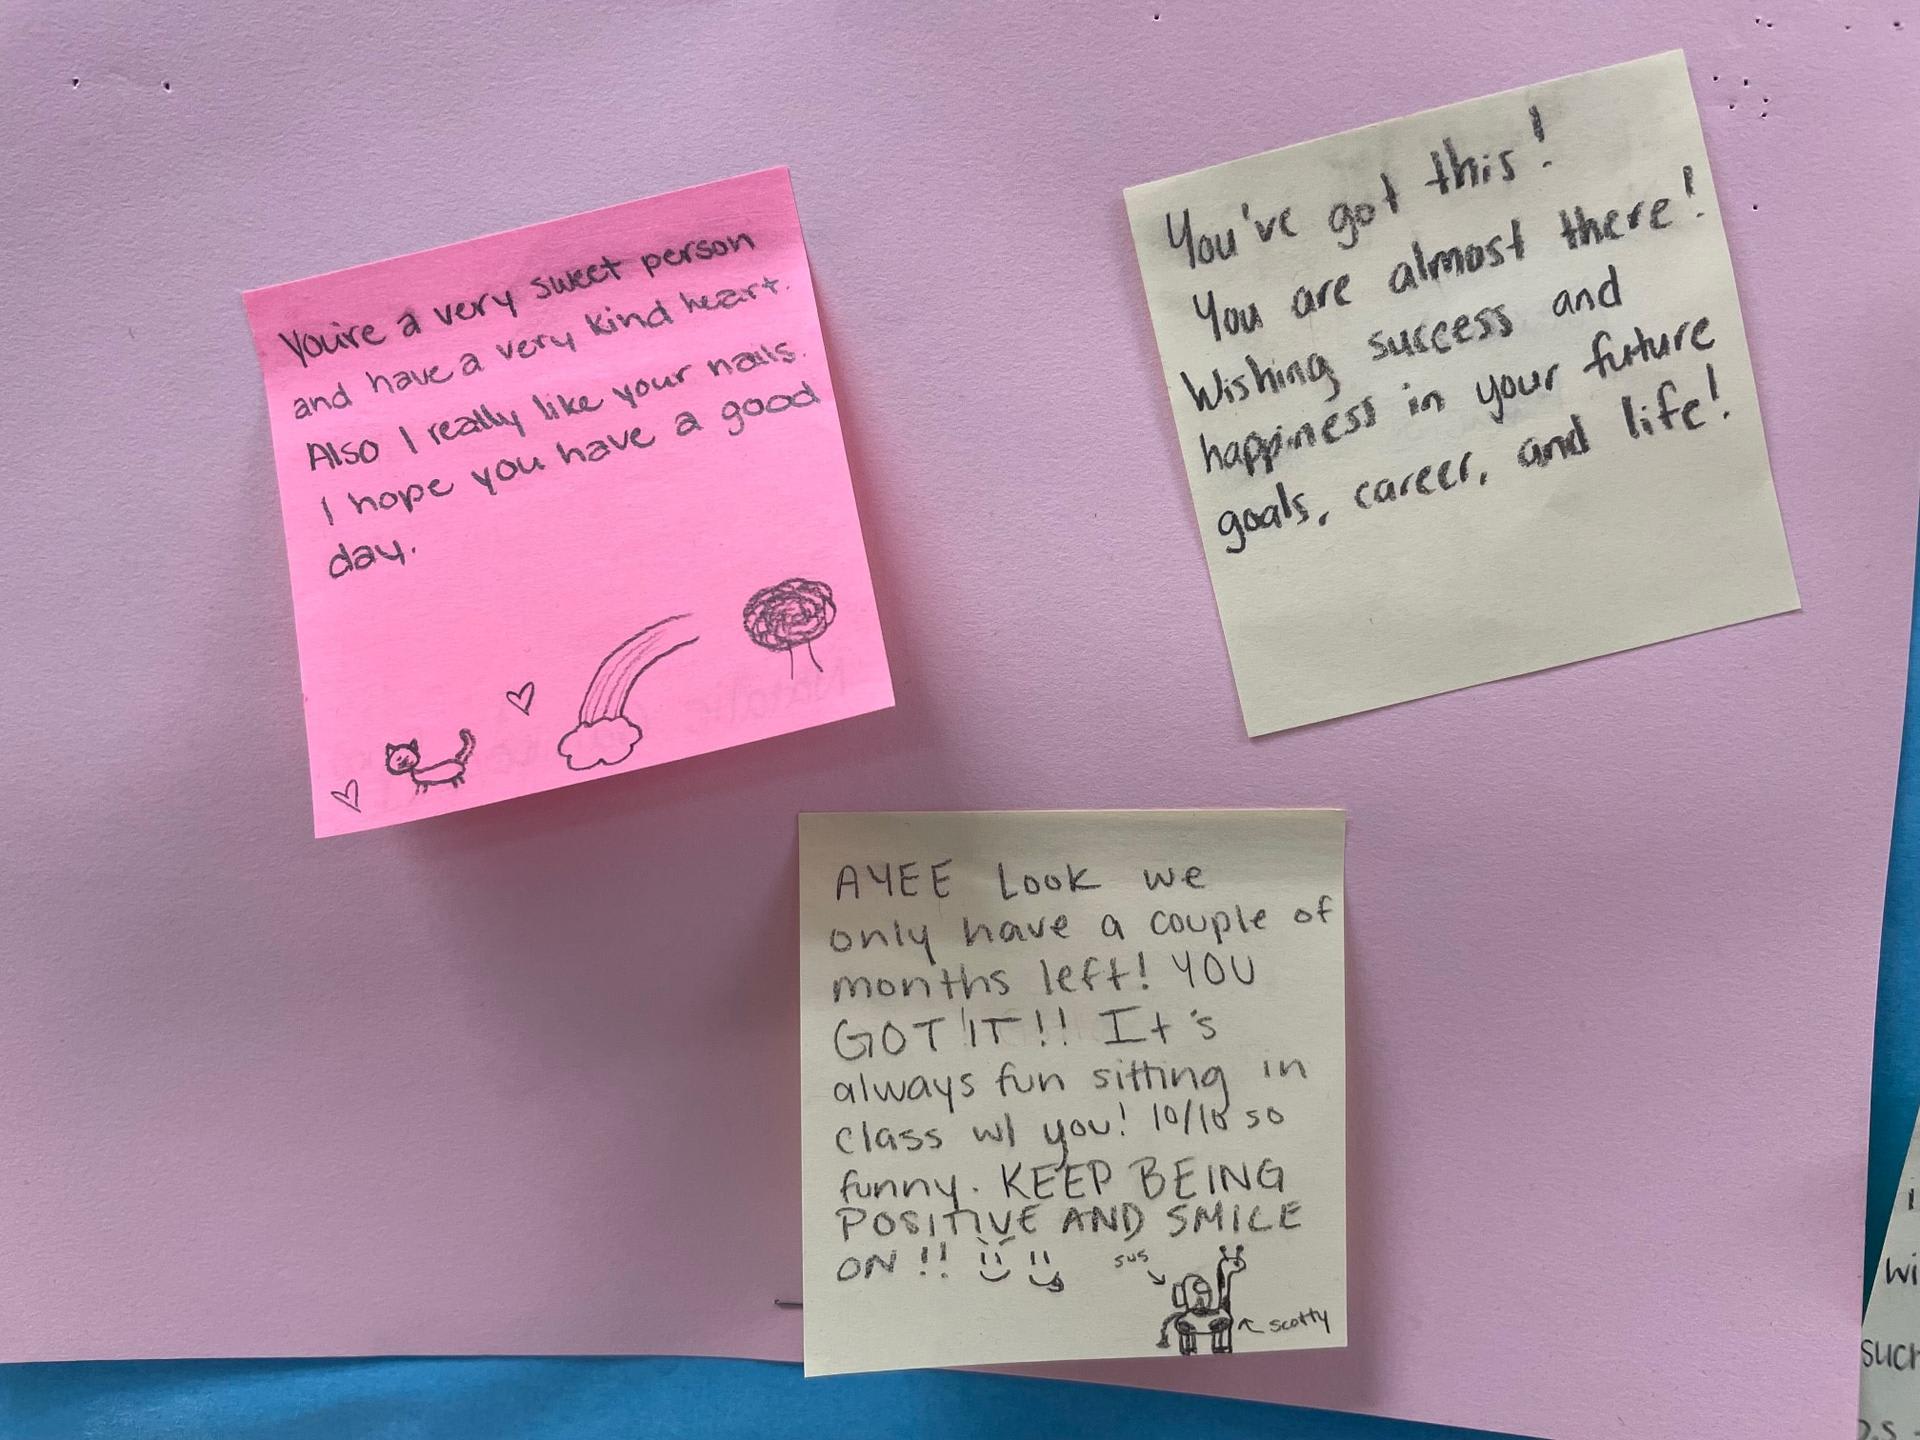 You're a very sweet person
and have a very kind heart.
Also I really like your nails.
I hope you have a good
day.
You've got this!
You are almost there!
Wishing success and
happiness in your future
goals, career, and life!
AYEE Look we
only have a couple of
months left! YOU
GOT IT!! It's
always fun sitting in
class w/ you! 10/10 so
funny. KEEP BEING
POSITIVE AND SMILE
ON!!
sus
scotty
wi
such